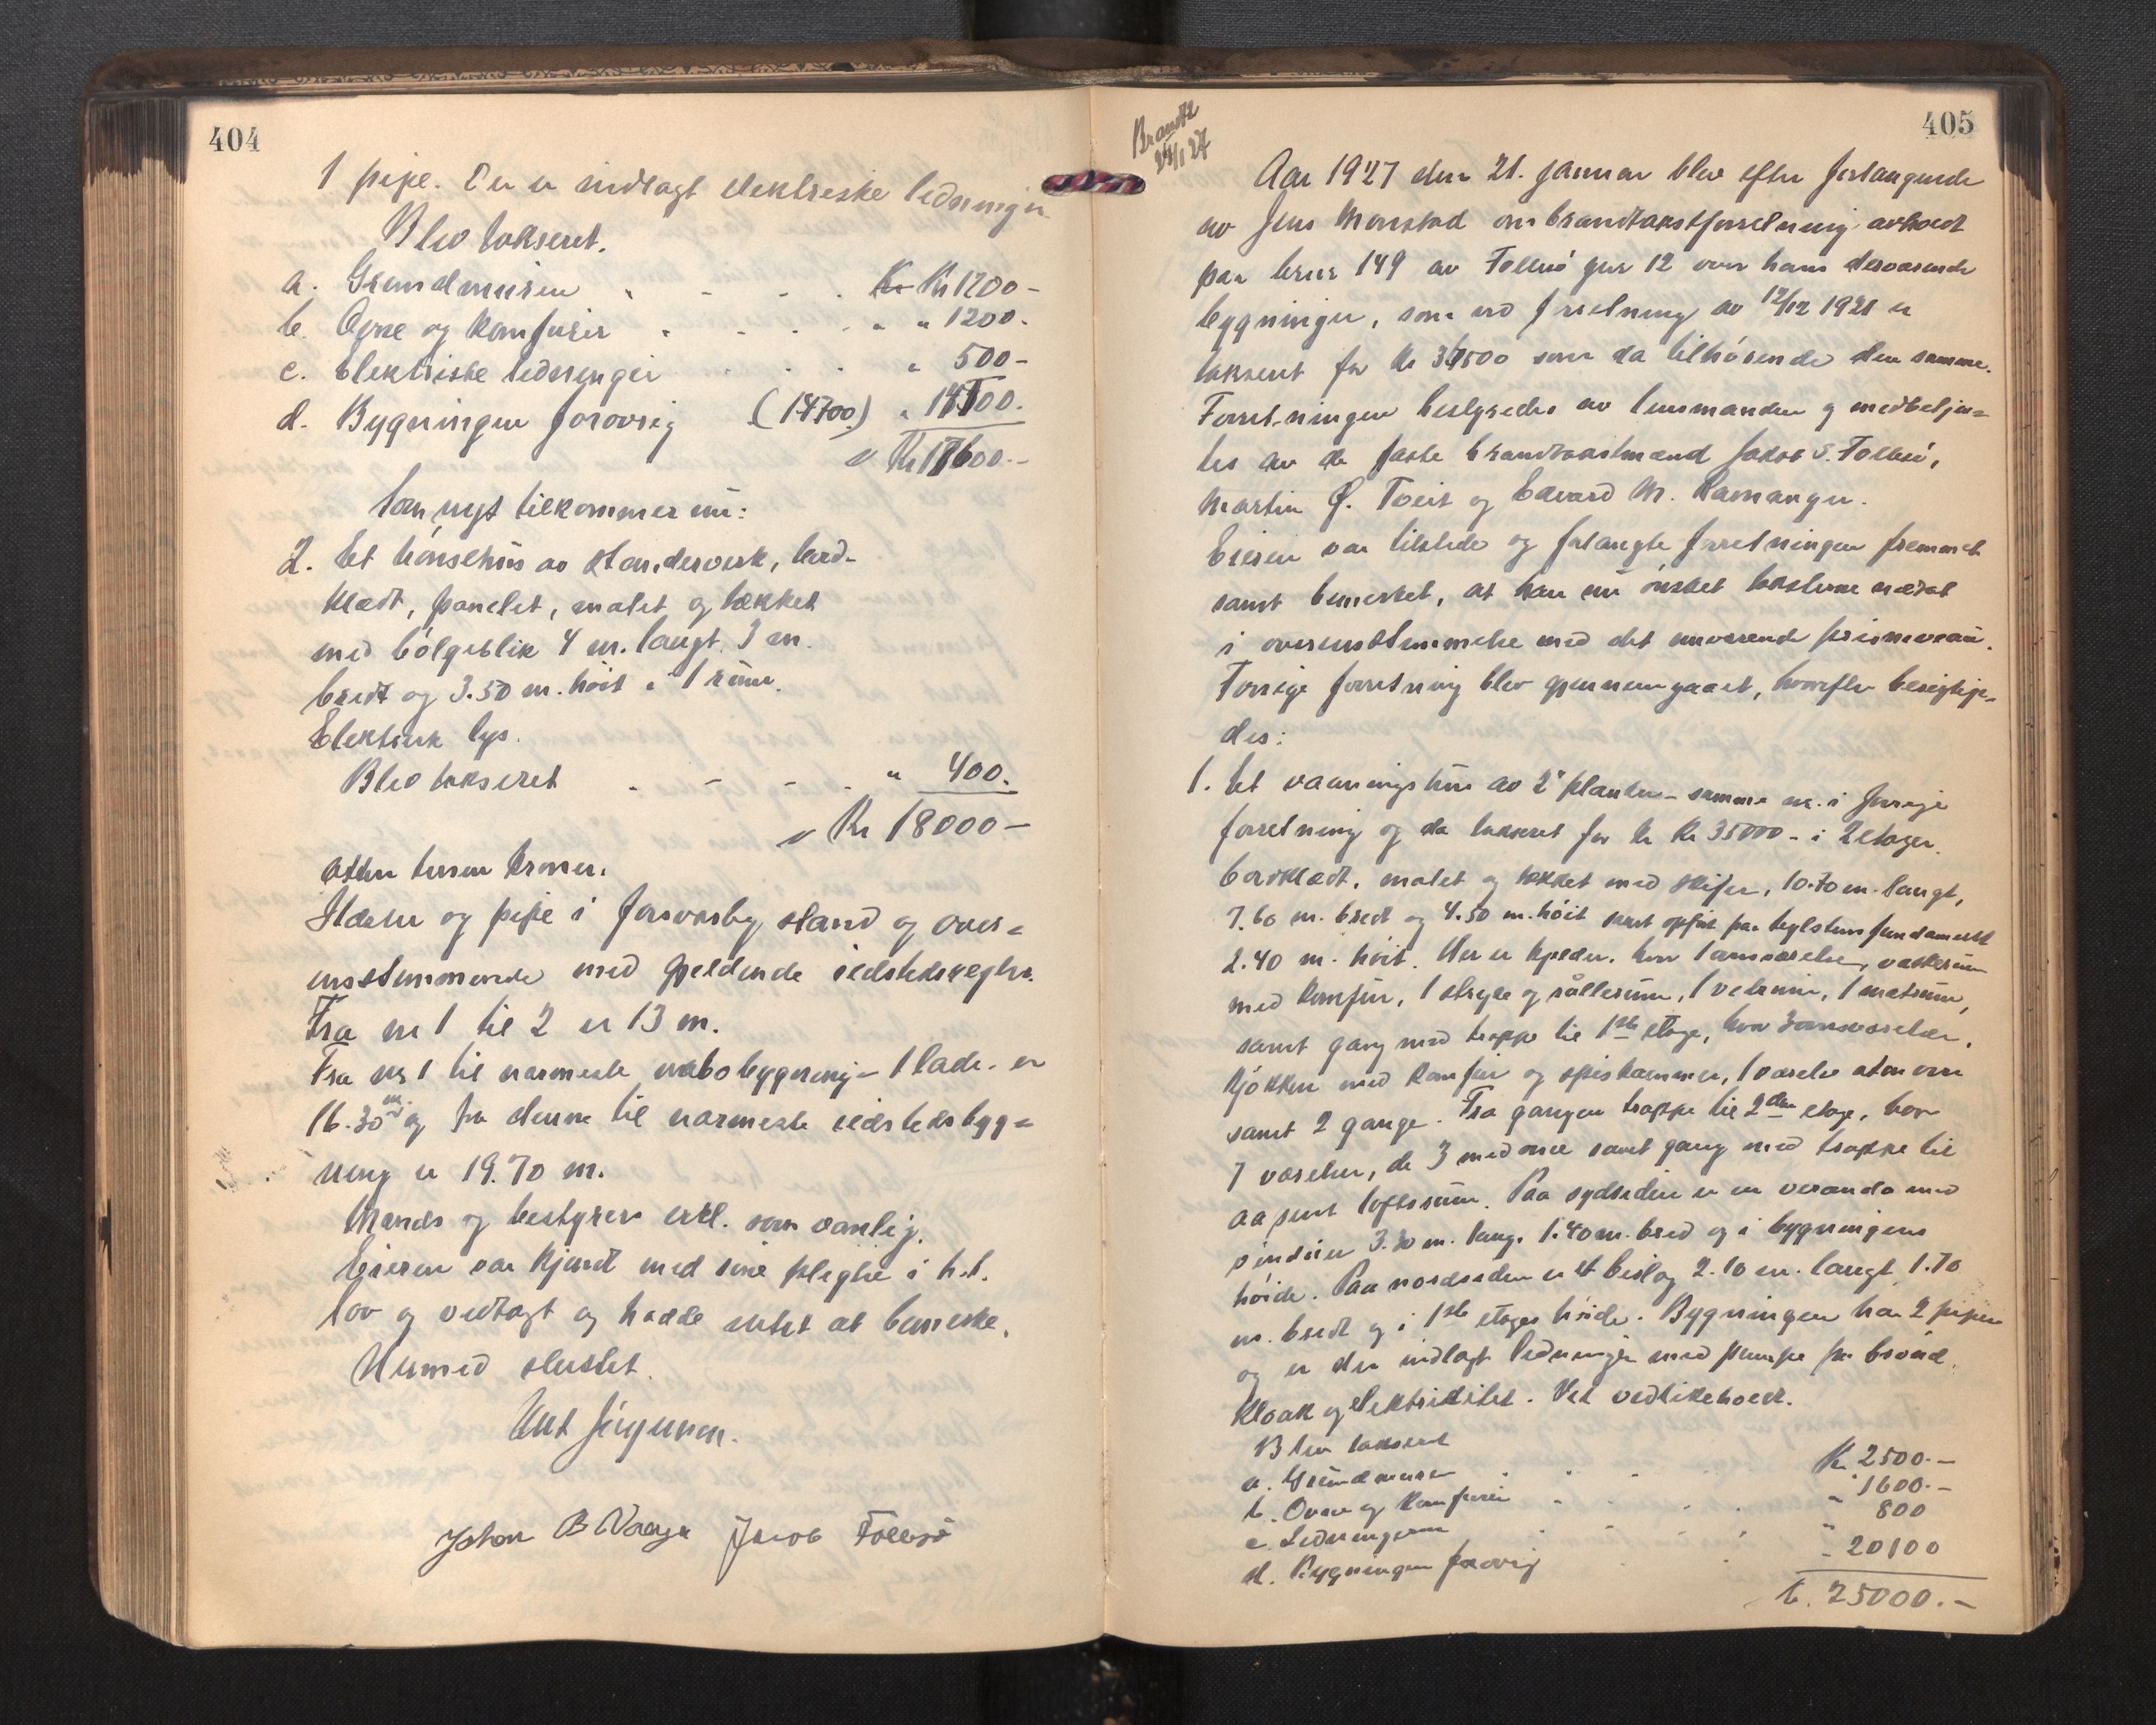 404
1 pipe. Der er indlagt elektriske ledninger
Blev takseret.
a. Grundmuren Kr 1200-
b. Ovne og komfurer " 1200.
c. Elektriske ledninger " 500-
d. Bygningen forøvrig (14700)
Kr 17600.-
Som nyt tilkommer nu:
2. Et hønsehus av standerverk, bord-
klædt, panelet, malet og tækket
med bølgeblik 4 m. langt, 3 m.
bredt og 3.50 m. høit i 1 rum.
Elektrisk lys.
Blev takseret " 400.
Kr 18000-
Atten tusen kroner.
Ildsteder og pipe i forsvarlig stand og over=
ensstemmende med gjeldende ildstedsregler.
Fra nr 1 til 2 er 13 m.
Fra nr 1 til nærmeste nabobygning - 1 lade - er
16.30 m. og fra denne til nærmeste ildstedsbygg=
ning er 19.70 m.
Mænds og bestyrers erkl. som vanlig.
Eieren var kjendt med sine pligter i h.t.
lov og vedtægt og hadde intet at bemerke.
Hermed sluttet.
Johan B Vaage Jacob Follesø
Brandt
24/1 27
405
Aar 1927 den 21. januar blev efter forlangende
av Jens Monstad om brandtakstforretning avholdt
paa brnr 149 av Follesø gnr 12 over hans derværende
bygninger, som ved forretning av 12/12 1921 er
takseret for kr som da tilhørende den samme.
Forretningen bestyredes av lensmanden og medbetjen=
tes av de faste brandtakstmænd Jakob S. Follesø,
Martin Ø. Tveit og Edvard M. Ramanger.
Eieren var tilstede og forlangte forretningen fremmet
samt bemerket, at han nu ønsket taksterne nedsat
i overensstemmelse med det nuværende prisniveau.
Forrige forretning blev gjennemgaaet, hvorefter besigtige-
des:
1. Et vaaningshus av 2" planker - samme nr. i forrige
forretning og da takseret for kr Kr 35000 - i 2 etager.
bordklædt, malet og tækket med skifer, 10.70 m. langt,
7.60 m. bredt og 4.50 m. høit samt opført paa teglstensfundament
2.40 m. høit. Her er kjelder, hvor 1 arnværelse, vaskerum
med komfur, 1 stryke og rullerum, 1 vedrum, 1 matrum,
samt gang med trappe til 1ste etage, hvor 3 værelser,
kjøkken med komfur og spiskammer, 1 værelse uten ovn
samt 2 gange. Fra gangen trappe til 2den etage, hvor
7 værelser, de 3 med ovne samt gang med trappe til
aapent loftsrum. Paa sydsiden er en veranda med
vinduer 3.30 m. lang, 1.40 m. bred og i bygningens
høide. Paa nordsiden er et bislag 2.10 m. langt 1.70
m. bredt og i 1ste etages høide. Bygningen har 2 piper
og er der indlagt ledninger med pumpe fra brønd,
kloak og elektricitet. Vel vedlikeholdt.
Blev takseret
a. Grundmuren Kr. 2500.-
b. Ovne og komfurer " 1600.-
c. Ledningerne " 800
d. Bygningen forøvrig - 20100
Kr. 25000.-